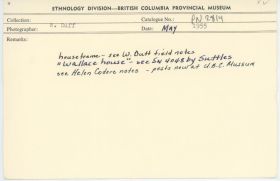 ETHNOLOGY DIVISION—BRITISH COLUMBIA PROVINCIAL MUSEUM
Collection: Catalogue No.: PN 2814
Photographer: W. DUFF Date: MAY 1955
Remarks:
houseframe - see W. Duff field notes
"Wallace house" - see SN 4048 by Suttles
see Helen Codere notes - posts now at U.B.C. Museum